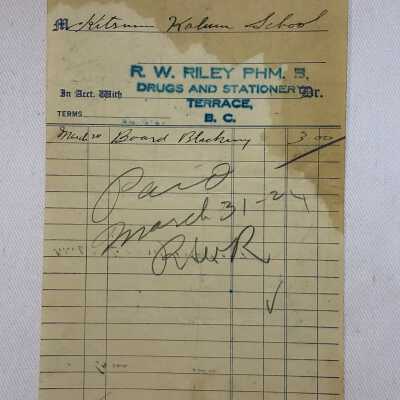 M Kitsum Kalum School
R. W. RILEY PHM. B,
DRUGS AND STATIONERY
In Acct. With Dr.
TERRACE,
TERMS
B. C.
Board Blacking 3 00
Paid
March 31-24
R.W.R.